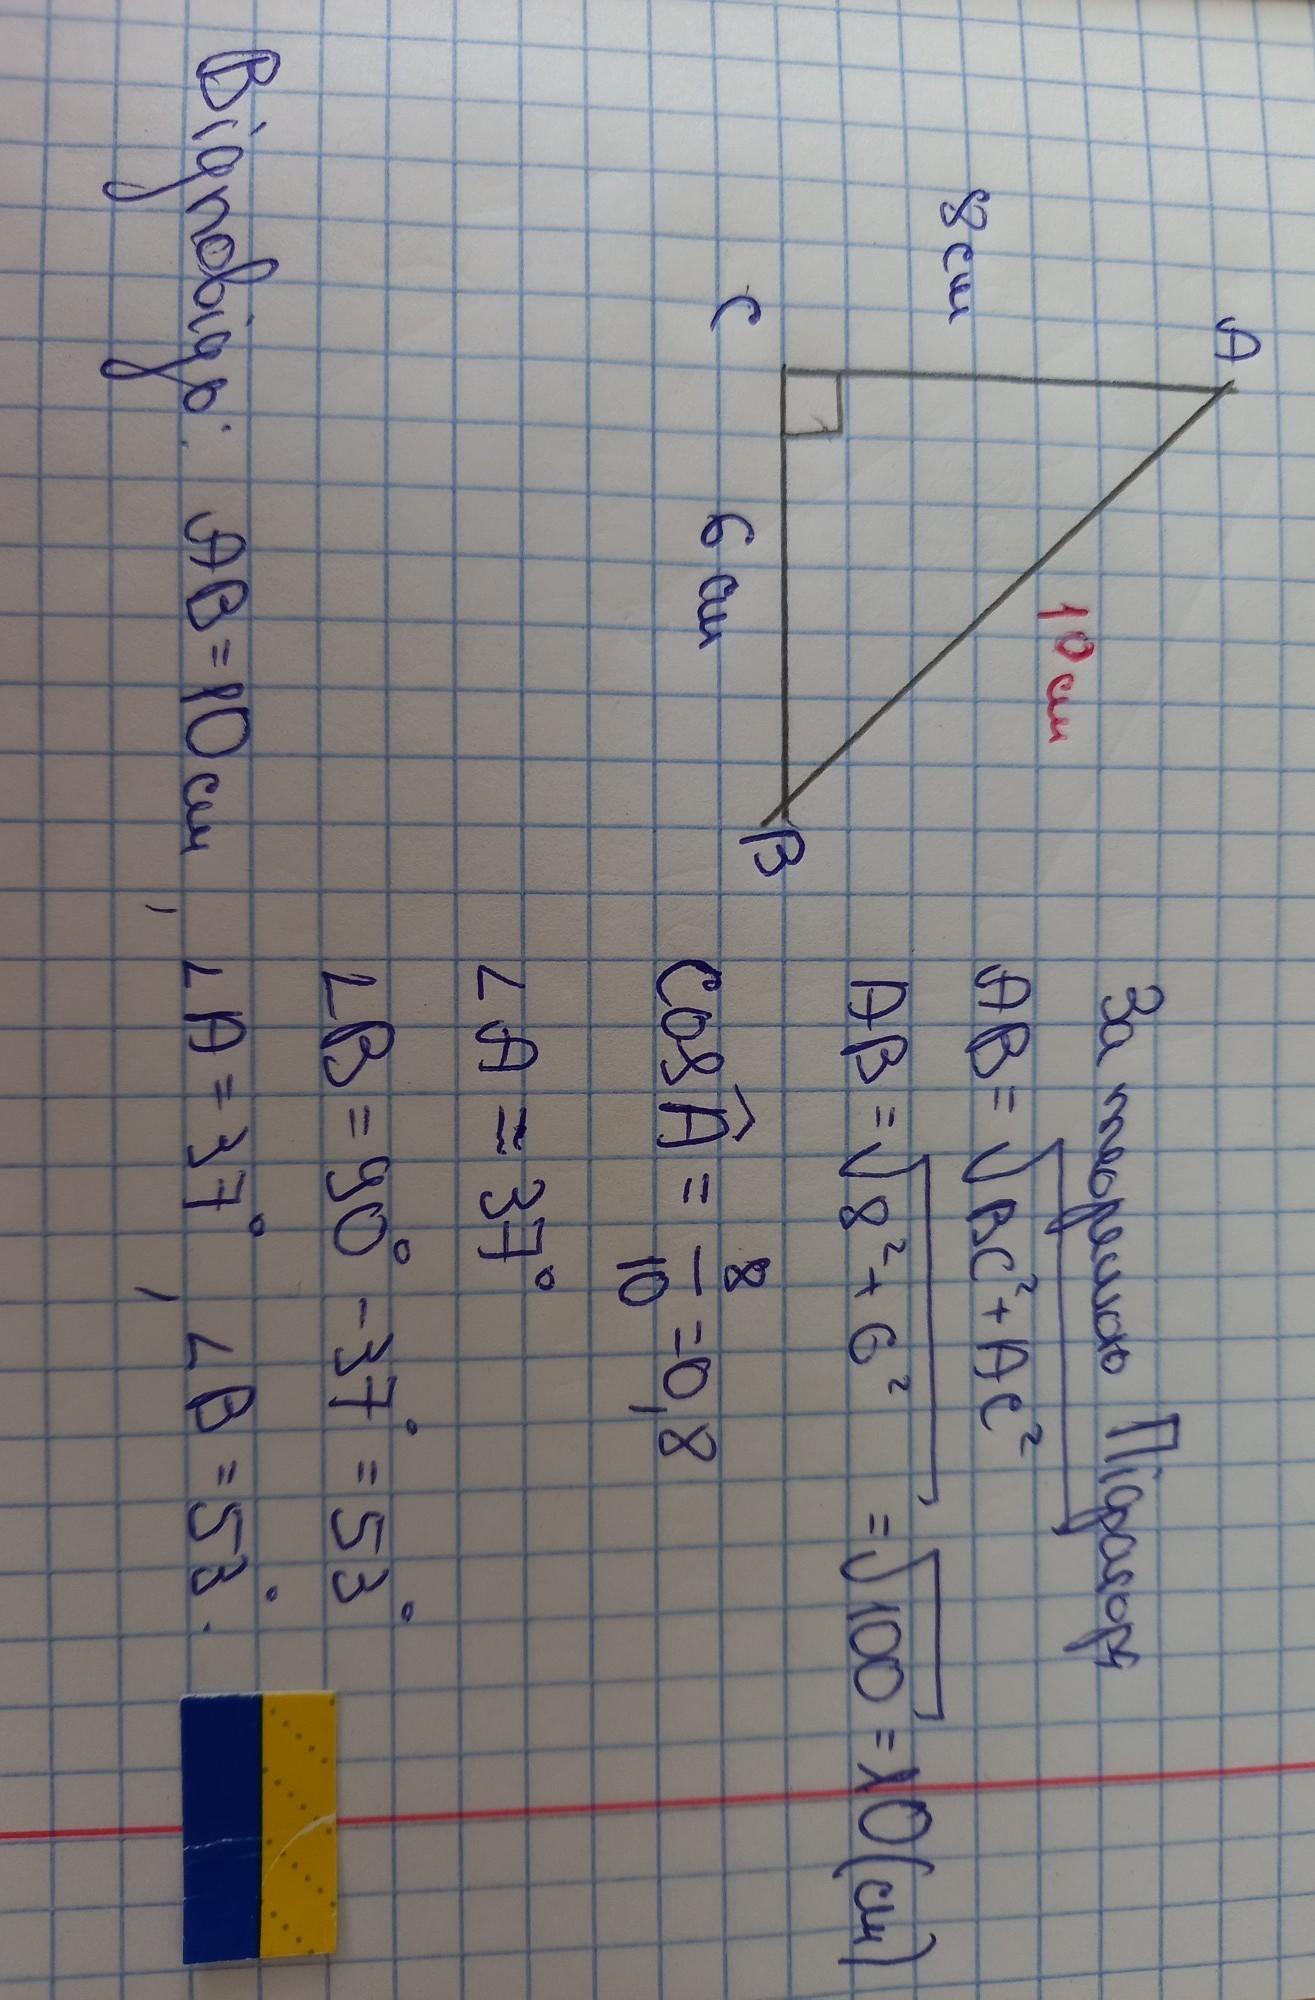 A
8 см
10 см
C
6 см
B
За теоремою Піфагора
AB = √BC² + AC²
AB = √8² + 6² = √100 = 10 (см)
Cos Â = 8/10 = 0,8
∠A ≈ 37°
∠B = 90° - 37° = 53°
Відповідь: AB = 10 см, ∠A = 37°, ∠B = 53°.